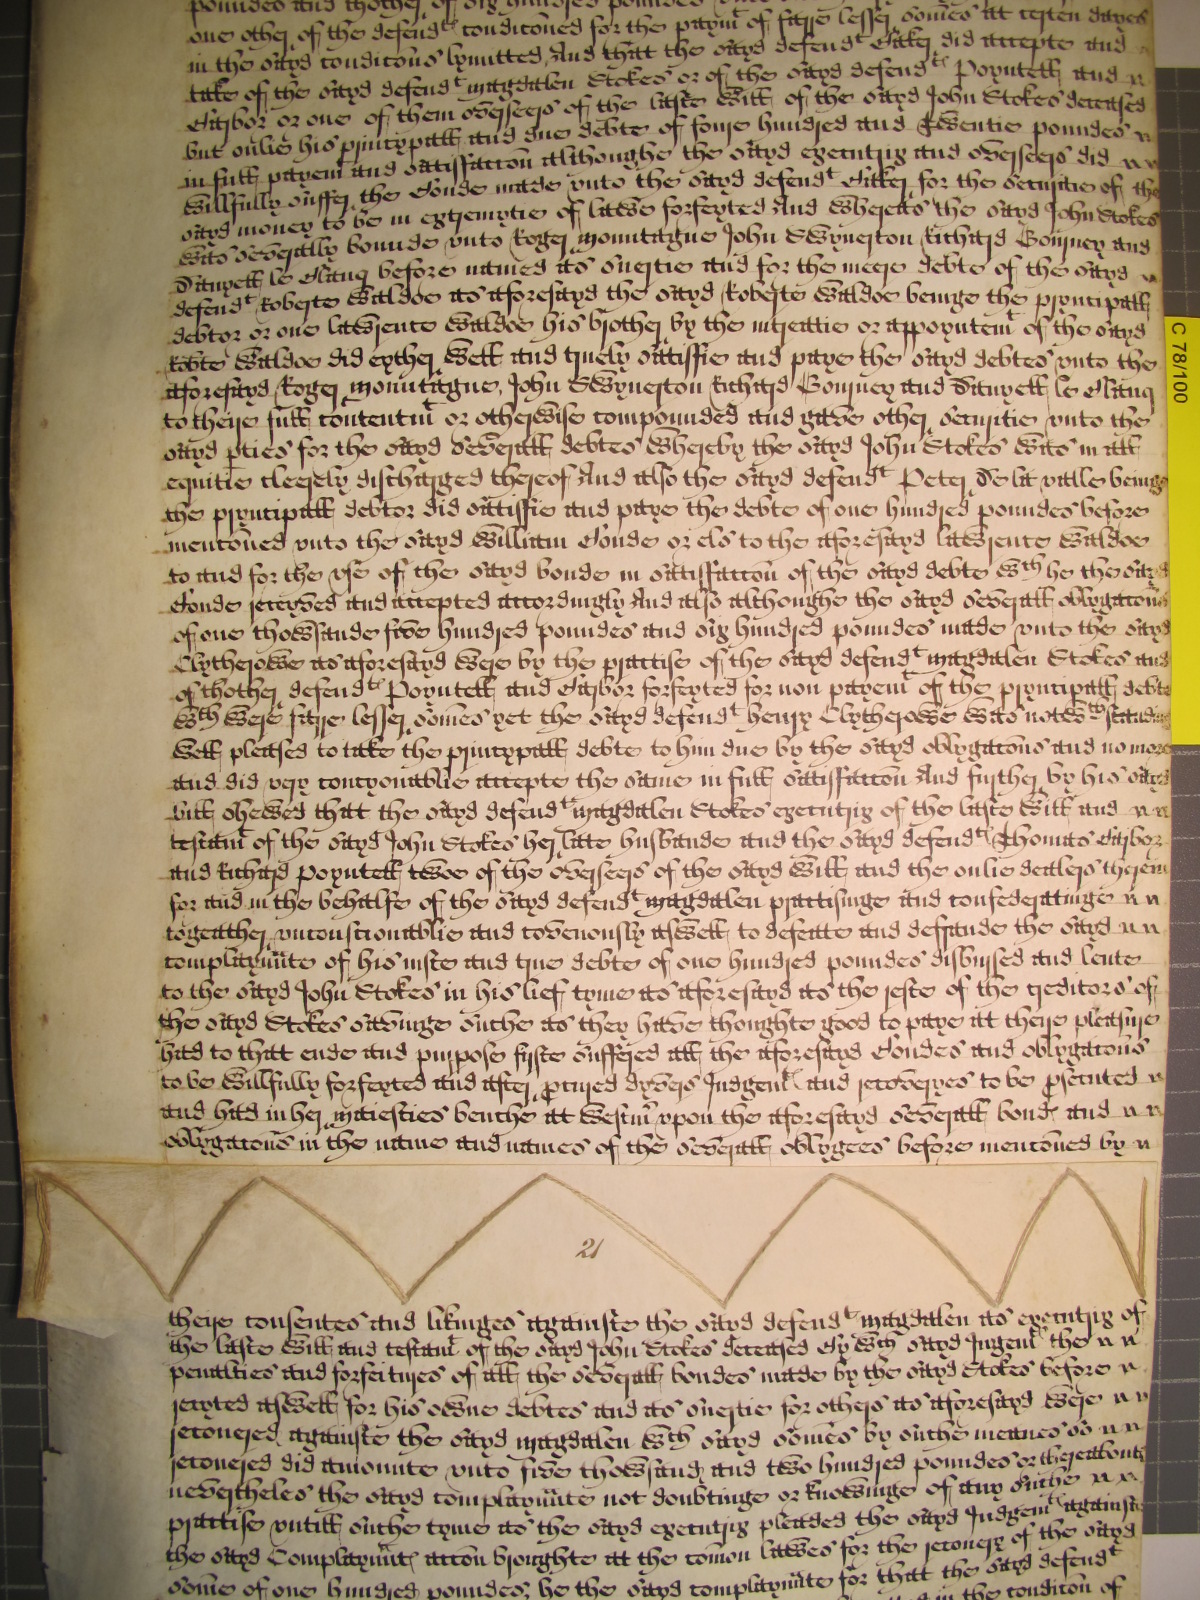 poundes and thother of six hundred poundes
one other of the defendtes conditioned for the paymt of farre lesser somes at certen dayes
in the sayd conditions lymitted And that the sayd defendt did accepte and
take of the sayd defendt Magdalen Stokes or of the sayd defendtes Poyntell and
Carbor or one of them overseers of the laste will of the sayd John Stokes deceased
but onlie his pryncypall and due debte of foure hundred and Twentie poundes
in full payemt and satisfaccon althoughe the sayd executrix and overseers did
willfully suffer the bonde made unto the sayd defendt for the securitie of the
sayd money to be in extremytie of lawe forfeyted And whereas the sayd John Stokes
was severally bounde unto Roger Mountague John Swynerton Richard Bourney and
Danyell le Clarq before named as suertie and for the meere debte of the sayd
defendt Roberte Waldoe as aforesayd the sayd Roberte Waldoe beinge the pryncipall
debtor or one Lawrence Waldoe his brother by the intreatie or appoyntemt of the sayd
Robte Waldoe did eyther well and truely satisfie and paye the sayd debtes unto the
aforesayd Roger Mountague, John Swynerton Richard Bourney and Danyell le Clarq
to theire full contentmt or otherwise compounded and gave other securitie unto the
sayd pties for the sayd severall debtes whereby the sayd John Stokes was in all
equitie cleerely discharged thereof And also the sayd defendt Peter De la valle beinge
the pryncipall debtor did satisfie and paye the debte of one hundred poundes before
mentoned unto the sayd William Bonde or els to the aforesayd Lawrence Waldoe
to and for the use of the sayd bonde in satisfaccon of the sayd debte wch he the sayd
Bonde receyved and accepted accordingly And also althoughe the sayd severall oblygatons
of one thowsande five hundred poundes and six hundred poundes made unto the sayd
Clytherowe as aforesayd were by the practise of the sayd defendt Magdalen Stokes and
of thother defendtes Poyntell and Carbor forfeyted for non payemt of the pryncipall debte
wch were farre lesser somes yet the sayd defendt Henry Clytherowe was notwthstanding
well pleased to take the pryncypall debte to him due by the sayd oblygatons and no more
and did very conscyonablie accepte the same in full satisfaccon And further by his sayd
bill shewed that the sayd defendtes Magdalen Stokes executrix of the laste will and
testamt of the sayd John Stokes her late husbande and the sayd defendtes Thomas Carbor
and Richard Poyntell twoe of the overseers of the sayd will and the onlie dealers therein
for and in the behalfe of the sayd defendt Magdalen practisinge and confederatinge
togeather unconscionablie and covenously aswell to defeate and defraude the sayd
complaynnte of his iuste and true debte of one hundred poundes disbursed and lente
to the sayd John Stokes in his lief tyme as aforesayd as the reste of the creditors of
the sayd Stokes savinge suche as they have thoughte good to paye at theire pleasure
had to that ende and purpose firste suffered all the aforesayd bondes and oblygatons
to be willfully forfeyted and after pcured dyvers Judgemtes and recoveryes to be psented
and had in her Maiesties benche at Westmr upon the aforesayd severall bondes and
oblygatons in the name and names of the severall oblygees before mentoned by
21
theire consentes and likinges againste the sayd defendt Magdalen as executrix of
the laste will and testamt of the sayd John Stokes deceased By wch sayd Jugemtes the
penalties and forfeitures of all the severall bondes made by the sayd Stokes before
recyted aswell for his owne debtes and as suertie for others as aforesayd were
recouered againste the sayd Magdalen wch sayd somes by suche meanes so
recouered did amounte unto five thowsand and two hundred poundes or thereabouts
nevertheles the sayd complaynnte not doubtinge or knowinge of any suche
practise untill suche tyme as the sayd executrix pleaded the sayd Judgemtes againste
the sayd Complaynntes accon broughte at the comon lawes for the recouery of the sayd
some of one hundred poundes, he the sayd complaynnte for that the sayd defendt
in the conditon of
C 78/100